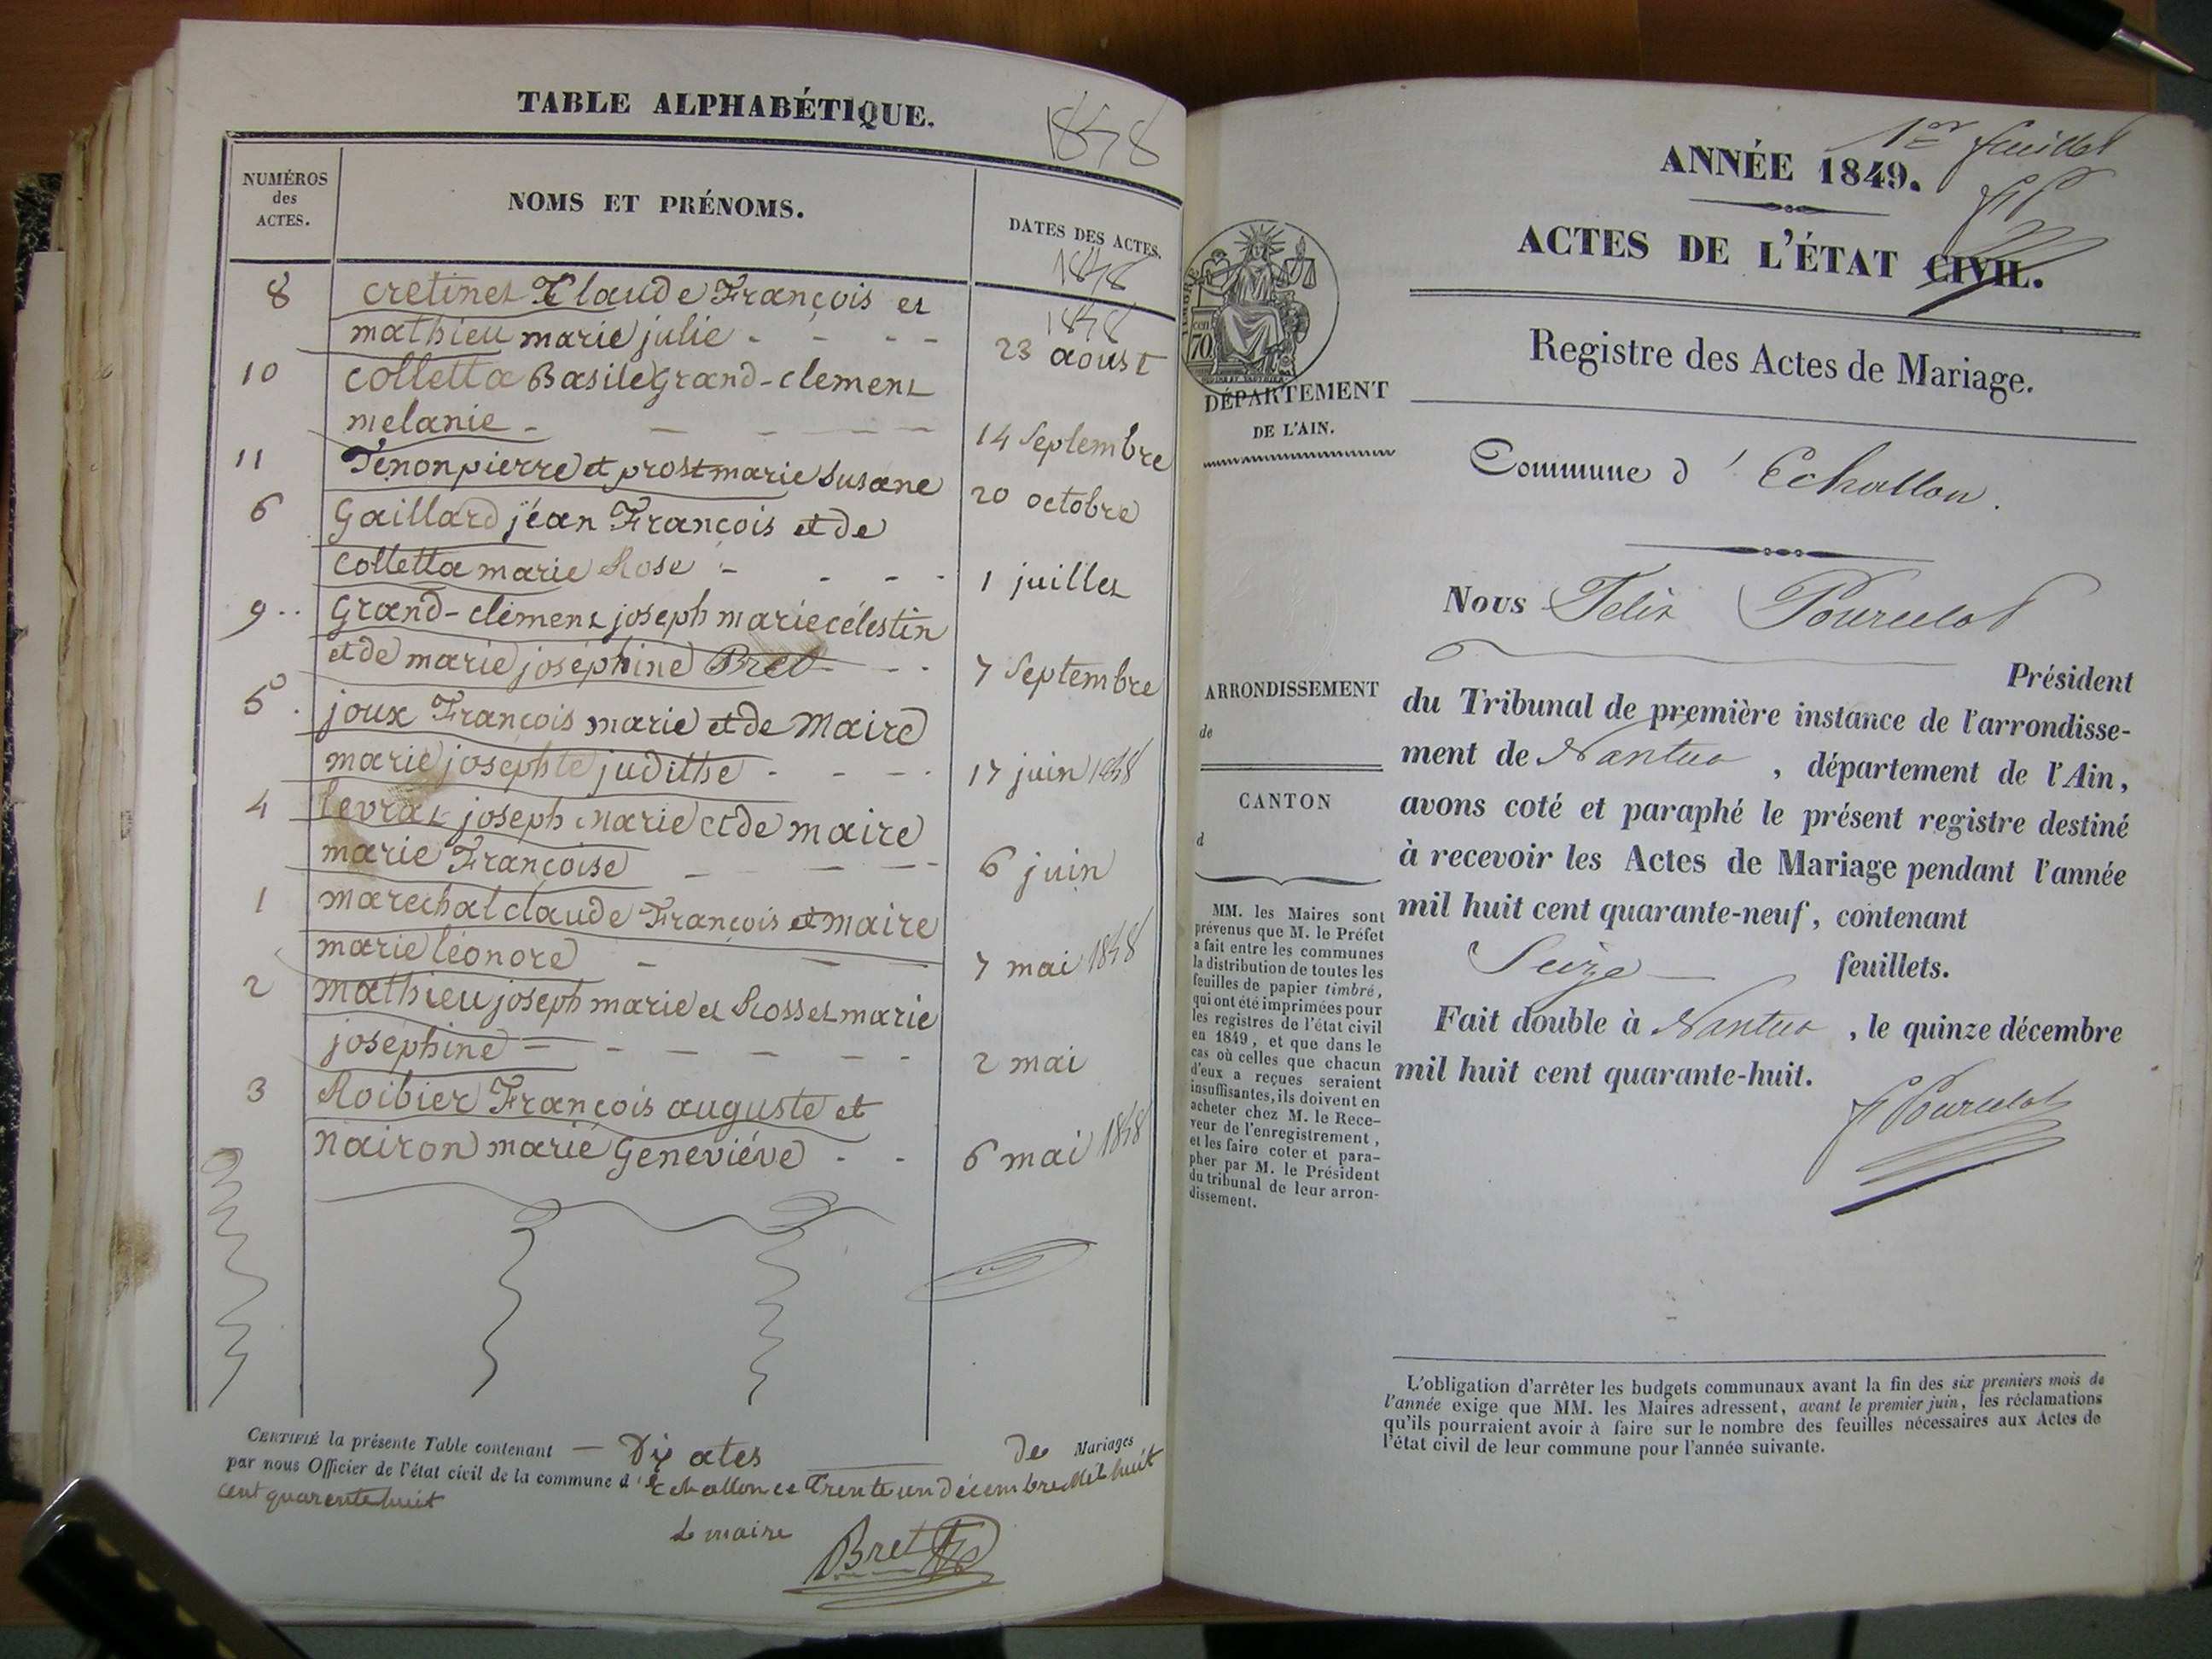 TABLE ALPHABÉTIQUE.
1848
NUMÉROS
des
ACTES.
NOMS ET PRÉNOMS.
DATES DES ACTES.
1848
1848
8 cretinet Claude François et
mathieu marie julie - - - - 23 aoust
10 colletta Basile Grand-clement
melanie - - - - - 14 Septembre
11 Tenon pierre et prost marie Susane 20 octobre
6 Gaillard jean François et de
colletta marie Rose - - - - 1 juillet
9 .. Grand-clément joseph marie célestin
et de marie joséphine Bret - - 7 Septembre
5 . joux François marie et de Maire
marie josephte judithe - - - - 17 juin 1848
4 levrat joseph Marie et de maire
marie Françoise - - - - 6 juin
1 marechal claude François et maire
marie léonore - - - 7 mai 1848
2 mathieu joseph marie et Rosset marie
joséphine - - - - - - 2 mai
3 Roibier François auguste et
nairon marie Geneviéve - - 6 mai 1848
CERTIFIÉ la présente Table contenant — Dix actes de Mariages
par nous Officier de l'état civil de la commune d'Echallon ce Trente un décembre Mil huit
cent quarente huit
Le maire
Bret
1er feuillet
ANNÉE 1849.
ACTES DE L'ÉTAT CIVIL.
TIMBRE
cen
70
Registre des Actes de Mariage.
DÉPARTEMENT
DE L'AIN.
Commune d'Echallon.
Nous Felix Pourcelot
Président
ARRONDISSEMENT
de
CANTON
d
du Tribunal de première instance de l'arrondisse-
ment de Nantua, département de l'Ain,
avons coté et paraphé le présent registre destiné
à recevoir les Actes de Mariage pendant l'année
mil huit cent quarante-neuf, contenant
Seize — feuillets.
Fait double à Nantua, le quinze décembre
mil huit cent quarante-huit.
F Pourcelot
MM. les Maires sont
prévenus que M. le Préfet
a fait entre les communes
la distribution de toutes les
feuilles de papier timbré,
qui ont été imprimées pour
les registres de l'état civil
en 1849, et que dans le
cas où celles que chacun
d'eux a reçues seraient
insuffisantes, ils doivent en
acheter chez M. le Rece-
veur de l'enregistrement,
et les faire coter et para-
pher par M. le Président
du tribunal de leur arron-
dissement.
L'obligation d'arrêter les budgets communaux avant la fin des six premiers mois de
l'année exige que MM. les Maires adressent, avant le premier juin, les réclamations
qu'ils pourraient avoir à faire sur le nombre des feuilles nécessaires aux Actes de
l'état civil de leur commune pour l'année suivante.